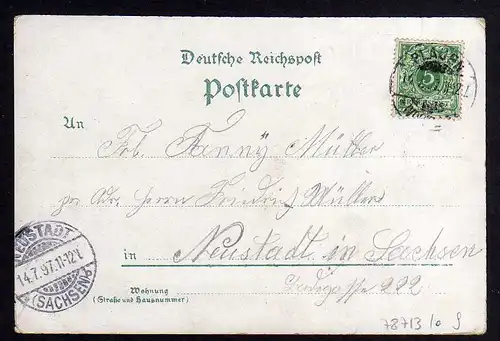 Deutsche Reichspost
Postkarte
PLAUEN
5
An
Frl. Fanny Müller
per Adr. Herrn Friedrich Müller
in Neustadt in Sachsen
222
Wohnung
(Straße und Hausnummer)
NEUSTADT
14.7.97.11-12V.
(SACHSEN)
78713